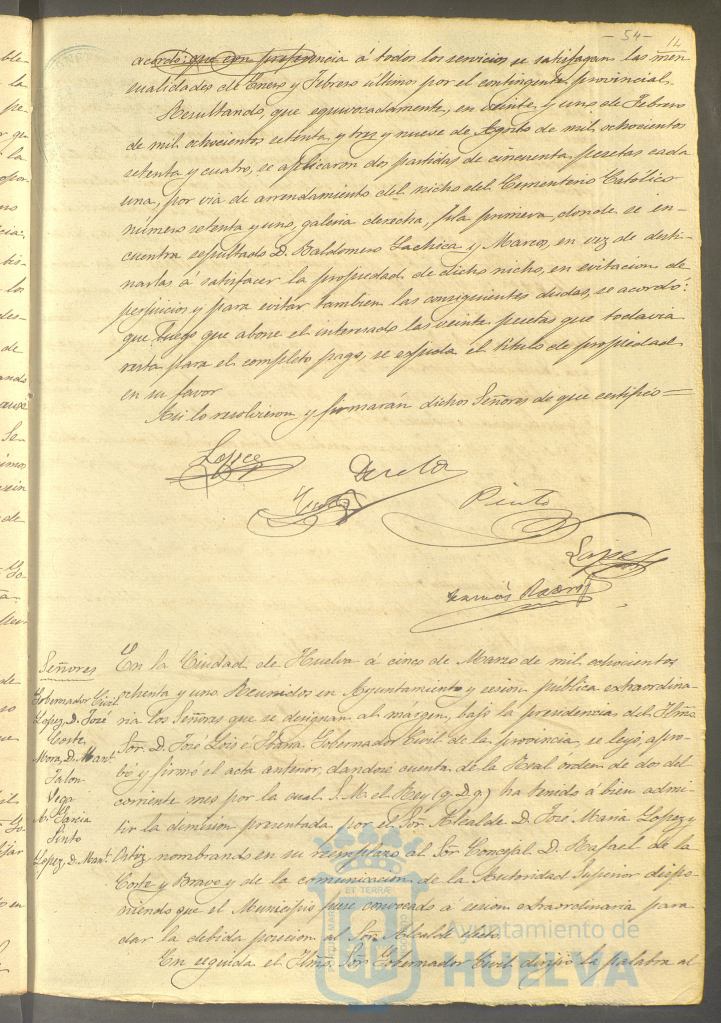 - 54 -
14
acordó: que con preferencia á todos los servicios se satisfagan las men-
sualidades de Enero y Febrero últimos por el contingente provincial.
Resultando, que equivocadamente, en veinte y uno de Febrero
de mil ochocientos setenta y tres y nueve de Agosto de mil ochocientos
setenta y cuatro, se aplicaron dos partidas de cincuenta pesetas cada
una, por via de arrendamiento del nicho del Cementerio Católico
número setenta y uno, galeria derecha, fila primera, donde se en-
cuentra sepultado D. Baldomero Lachica y Marco, en vez de desti-
narlas á satisfacer la propiedad de dicho nicho, en evitacion de
perjuicios y para evitar tambien las consiguientes dudas, se acordó:
que luego que abone el interesado las veinte pesetas que todavia
resta para el completo pago, se espida el título de propiedad
en su favor
Asi lo resolvieron y firmarán dichos Señores de que certifico =
Lopez
Pinto
Lopez
Señores
Gobernador Civil
Lopez, D. José
Corte
Mora, D. Manl.
Jalon
Vega
Garcia
Pinto
Lopez, D. Manl.
En la Ciudad de Huelva á cinco de Marzo de mil ochocientos
ochenta y uno Reunidos en Ayuntamiento y sesion pública extraordina-
ria los Señores que se designan al márgen, bajo la presidencia del Iltmo.
Sor. D. José Lois é Ibarra Gobernador Civil de la provincia, se leyó, apro-
bó y firmó el acta anterior, dandose cuenta de la Real orden de dos del
corriente mes por la cual S. M. el Rey (q. D. g.) ha tenido á bien admi-
tir la dimision presentada por el Sor. Alcalde D. José Maria Lopez y
Ortiz, nombrando en su reemplazo al Sor. Concejal D. Rafael de la
Corte y Bravo y de la comunicacion de la Autoridad Superior dispo-
niendo que el Municipio fuese convocado á sesion extraordinaria para
dar la debida posesion al Sor. Alcalde
En seguida el Iltmo. Sor. Gobernador Civil dirijió la palabra al
Ayuntamiento de
HUELVA